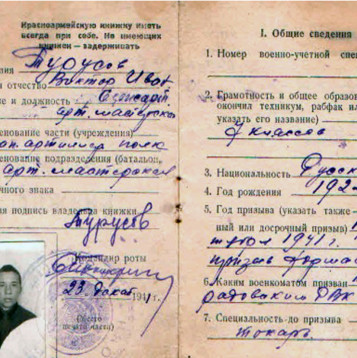 Красноармейскую книжку иметь
всегда при себе. Не имеющих
книжки — задерживать
Турусов
Виктор Иван
отчество
и должность Сержант
арт.
енование части (учреждения)
полк
енование подразделения (батальон,
арт. мастерская
ичного знака
ая подпись владельца книжки
Турусов
Командир роты
23 1941
(Место
печати части)
I. Общие сведения
1. Номер военно-учетной спец
2. Грамотность и общее образов
окончил техникум, рабфак ил
указать его название)
классов
3. Национальность Русск
4. Год рождения 192
5. Год призыва (указать также
ный или досрочный призыв)
1941 г.
призыв
6. Каким военкоматом призван
радовским РВК
7. Специальность до призыва
токарь